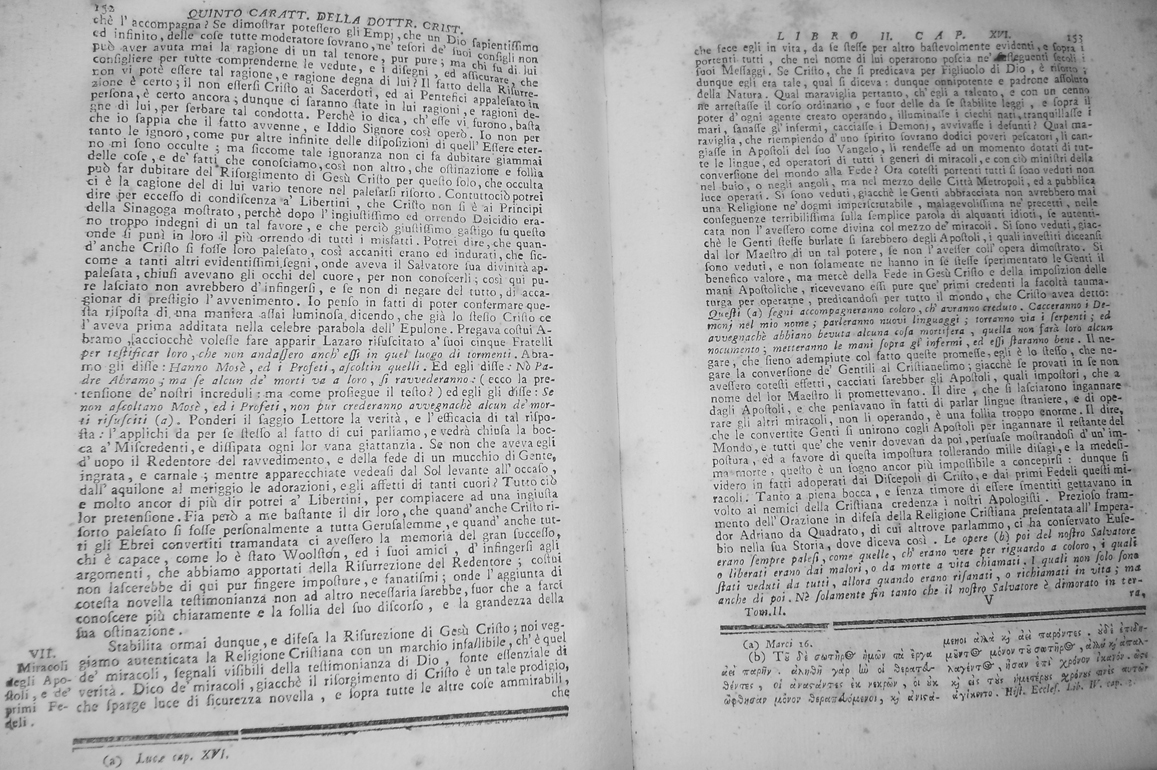 152
QUINTO CARATT. DELLA DOTTR. CRIST.
chè l'accompagna? Se dimoſtrar poteſſero gli Empj, che un Dio ſapientiſſimo
ed infinito, delle coſe tutte moderatore ſovrano, ne' teſori de' ſuoi conſigli non
può aver avuta mai la ragione di un tal tenore, pur pure; ma chi fu di lui
conſigliere per tutte comprenderne le vedute, e i diſegni, ed aſſicurare, che
non vi potè eſſere tal ragione, e ragione degna di lui? Il fatto della Riſurre-
zione è certo; il non eſſerſi Criſto ai Sacerdoti, ed ai Pontefici appaleſato in
perſona, è certo ancora; dunque ci ſaranno ſtate in lui ragioni, e ragioni de-
gne di lui, per ſerbare tal condotta. Perchè io dica, ch'eſſe vi furono, baſta
che io ſappia che il fatto avvenne, e Iddio Signore così operò. Io non per
tanto le ignoro, come pur altre infinite delle diſpoſizioni di quell'Eſſere eter-
no mi ſono occulte; ma ſiccome tale ignoranza non ci fa dubitare giammai
delle coſe, e de' fatti, che conoſciamo, così non altro, che oſtinazione e follia
può far dubitare del Riſorgimento di Gesù Criſto per queſto ſolo, che occulta
ci è la cagione del di lui vario tenore nel paleſarſi riſorto. Contuttociò potrei
dire per ecceſſo di condiſcenza a' Libertini, che Criſto non ſi è ai Principi
della Sinagoga moſtrato, perchè dopo l'ingiuſtiſſimo ed orrendo Deicidio era-
no troppo indegni di un tal favore, e che perciò giuſtiſſimo gaſtigo fu queſto
onde ſi punì in loro il più orrendo di tutti i misfatti. Potrei dire, che quan-
d'anche Criſto ſi foſſe loro paleſato, così accaniti erano ed indurati, che ſic-
come a tanti altri evidentiſſimi ſegni, onde aveva il Salvatore ſua divinità ap-
paleſata, chiuſi avevano gli occhi del cuore, per non conoſcerli; così qui pu-
re laſciato non avrebbero d'infingerſi, e ſe non di negare del tutto, di acca-
gionar di preſtigio l'avvenimento. Io penſo in fatti di poter confermare que-
ſta riſpoſta di una maniera aſſai luminoſa, dicendo, che già lo ſteſſo Criſto ce
l'aveva prima additata nella celebre parabola dell'Epulone. Pregava coſtui A-
bramo, facciocchè voleſſe fare apparir Lazaro riſuſcitato a' ſuoi cinque Fratelli
per teſtificar loro, che non andaſſero anch'eſſi in quel luogo di tormenti. Abra-
mo gli diſſe: Hanno Mosè, ed i Profeti, aſcoltin quelli. Ed egli diſſe: Nò Pa-
dre Abramo; ma ſe alcun de' morti va a loro, ſi ravvederanno: (ecco la pre-
tenſione de' noſtri increduli: ma come proſiegue il teſto?) ed egli gli diſſe: Se
non aſcoltano Mosè, ed i Profeti, non pur crederanno avvegnachè alcun de' mor-
ti riſuſciti (a). Ponderi il ſaggio Lettore la verità, e l'efficacia di tal riſpo-
ſta: l'applichi da per ſe ſteſſo al fatto di cui parliamo, e vedrà chiuſa la boc-
ca a' Miſcredenti, e diſſipata ogni lor vana giattanzia. Se non che aveva egli
d'uopo il Redentore del ravvedimento, e della fede di un mucchio di Gente,
ingrata, e carnale; mentre apparecchiate vedeaſi dal Sol levante all'occaſo,
dall'aquilone al meriggio le adorazioni, e gli affetti di tanti cuori? Tutto ciò
e molto ancor di più dir potrei a' Libertini, per compiacere ad una ingiuſta
lor pretenſione. Fia però a me baſtante il dir loro, che quand'anche Criſto ri-
ſorto paleſato ſi foſſe perſonalmente a tutta Geruſalemme, e quand'anche tut-
ti gli Ebrei convertiti tramandata ci aveſſero la memoria del gran ſucceſſo,
chi è capace, come lo è ſtato Woolſton, ed i ſuoi amici, d'infingerſi agli
argomenti, che abbiamo apportati della Riſurrezione del Redentore; coſtui
non laſcerebbe di qui pur fingere impoſture, e fanatiſmi; onde l'aggiunta di
coteſta novella teſtimonianza non ad altro neceſſaria ſarebbe, fuor che a farci
conoſcere più chiaramente e la follia del ſuo diſcorſo, e la grandezza della
ſua oſtinazione.
VII.
Miracoli
degli Apo-
ſtoli, e de'
primi Fe-
deli.
Stabilita ormai dunque, e difeſa la Riſurezione di Gesù Criſto; noi veg-
giamo autenticata la Religione Criſtiana con un marchio infallibile, ch'è quel
de' miracoli, ſegnali viſibili della teſtimonianza di Dio, fonte eſſenziale di
verità. Dico de' miracoli, giacchè il riſorgimento di Criſto è un tale prodigio,
che ſparge luce di ſicurezza novella, e ſopra tutte le altre coſe ammirabili,
che
(a) Lucæ cap. XVI.
LIBRO II. CAP. XVI.
153
che fece egli in vita, da ſe ſteſſe per altro baſtevolmente evidenti, e ſopra i
portenti tutti, che nel nome di lui operarono poſcia ne' ſeguenti ſecoli i
ſuoi Meſſaggi. Se Criſto, che ſi predicava per Figliuolo di Dio, è riſorto;
dunque egli era tale, qual ſi diceva: dunque onnipotente e padrone aſſoluto
della Natura. Qual maraviglia pertanto, ch'egli a talento, e con un cenno
ne arreſtaſſe il corſo ordinario, e fuor delle da ſe ſtabilite leggi, e ſopra il
poter d'ogni agente creato operando, illuminaſſe i ciechi nati, tranquillaſſe i
mari, ſanaſſe gl'infermi, cacciaſſe i Demoni, avvivaſſe i defunti? Qual ma-
raviglia, che riempiendo d'uno ſpirito ſovrano dodici poveri peſcatori, li can-
giaſſe in Apoſtoli del ſuo Vangelo, li rendeſſe ad un momento dotati di tut-
te le lingue, ed operatori di tutti i generi di miracoli, e con ciò miniſtri della
converſione del mondo alla Fede? Ora coteſti portenti tutti ſi ſono veduti non
nel buio, o negli angoli, ma nel mezzo delle Città Metropoli, ed a pubblica
luce operati. Si ſono veduti, giacchè le Genti abbracciata non avrebbero mai
una Religione ne' dogmi imperſcrutabile, malagevoliſſima ne' precetti, nelle
conſeguenze terribiliſſima ſulla ſemplice parola di alquanti idioti, ſe autenti-
cata non l'aveſſero come divina col mezzo de' miracoli. Si ſono veduti, giac-
chè le Genti ſteſſe burlate ſi ſarebbero degli Apoſtoli, i quali inveſtiti diceanſi
dal lor Maeſtro di un tal potere, ſe non l'aveſſer coll'opera dimoſtrato. Si
ſono veduti, e non ſolamente ne hanno in ſe ſteſſe ſperimentato le Genti il
benefico valore, ma mercè della Fede in Gesù Criſto e della impoſizion delle
mani Apoſtoliche, ricevevano eſſi pure que' primi credenti la facoltà tauma-
turga per operarne, predicandoſi per tutto il mondo, che Criſto avea detto:
Queſti (a) ſegni accompagneranno coloro, ch'avranno creduto. Cacceranno i De-
monj nel mio nome; parleranno nuovi linguaggi; torranno via i ſerpenti; ed
avvegnachè abbiano bevuta alcuna coſa mortifera, quella non farà loro alcun
nocumento; metteranno le mani ſopra gl'infermi, ed eſſi ſtaranno bene. Il ne-
gare, che ſieno adempiute col fatto queſte promeſſe, egli è lo ſteſſo, che ne-
gare la converſione de' Gentili al Criſtianeſimo; giacchè ſe provati in ſe non
aveſſero coteſti effetti, cacciati ſarebber gli Apoſtoli, quali impoſtori, che a
nome del lor Maeſtro li promettevano. Il dire, che ſi laſciarono ingannare
dagli Apoſtoli, e che penſavano in fatti di parlar lingue ſtraniere, e di ope-
rare gli altri miracoli, non li operando, è una follia troppo enorme. Il dire,
che le convertite Genti ſi unirono cogli Apoſtoli per ingannare il reſtante del
Mondo, e tutti que' che venir dovevan da poi, perſuaſe moſtrandoſi d'un'im-
poſtura, ed a favore di queſta impoſtura tollerando mille diſagi, e la medeſi-
ma morte, queſto è un ſogno ancor più impoſſibile a concepirſi: dunque ſi
videro in fatti adoperati dai Diſcepoli di Criſto, e dai primi Fedeli queſti mi-
racoli. Tanto a piena bocca, e ſenza timore di eſſere ſmentiti gettavano in
volto ai nemici della Criſtiana credenza i noſtri Apologiſti. Prezioſo fram-
mento dell'Orazione in difeſa della Religione Criſtiana preſentata all'Impera-
dor Adriano da Quadrato, di cui altrove parlammo, ci ha conſervato Euſe-
bio nella ſua Storia, dove diceva così. Le opere (b) poi del noſtro Salvatore
erano ſempre paleſi, come quelle, ch'erano vere per riguardo a coloro, i quali
o liberati erano dai malori, o da morte a vita chiamati. I quali non ſolo ſono
ſtati veduti da tutti, allora quando erano riſanati, o richiamati in vita; ma
anche di poi. Nè ſolamente fin tanto che il noſtro Salvatore è dimorato in ter-
Tom. II.
V
ra,
(a) Marci 16.
(b) Τοῦ δὲ σωτῆρος ἡμῶν τὰ ἔργα
ἀεὶ παρῆν. ἀληθῆ γὰρ ἦν οἱ θεραπευ-
θέντες, οἱ ἀναστάντες ἐκ νεκρῶν, οἱ οὐκ
ὤφθησαν μόνον θεραπευόμενοι, καὶ ἀνιστά-
μενοι ἀλλὰ καὶ ἀεὶ παρόντες. οὐδὲ ἐπιδη-
μοῦντος μόνον τοῦ σωτῆρος, ἀλλὰ καὶ ἀπαλ-
λαγέντος, ἦσαν ἐπὶ χρόνον ἱκανὸν. ὥστε
καὶ εἰς τοὺς ἡμετέρους χρόνους τινὲς αὐτῶν
ἀφίκοντο. Hiſt. Eccleſ. Lib. IV. cap.